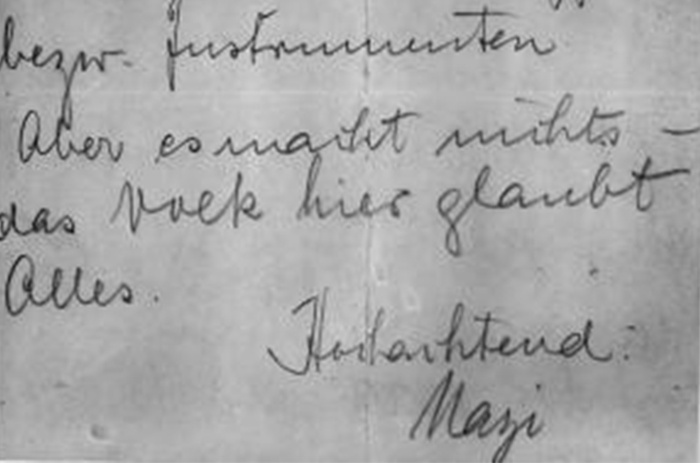 bezw. Instrumenten
Aber es macht nichts –
das Volk hier glaubt
Alles.
Hochachtend:
Nazi